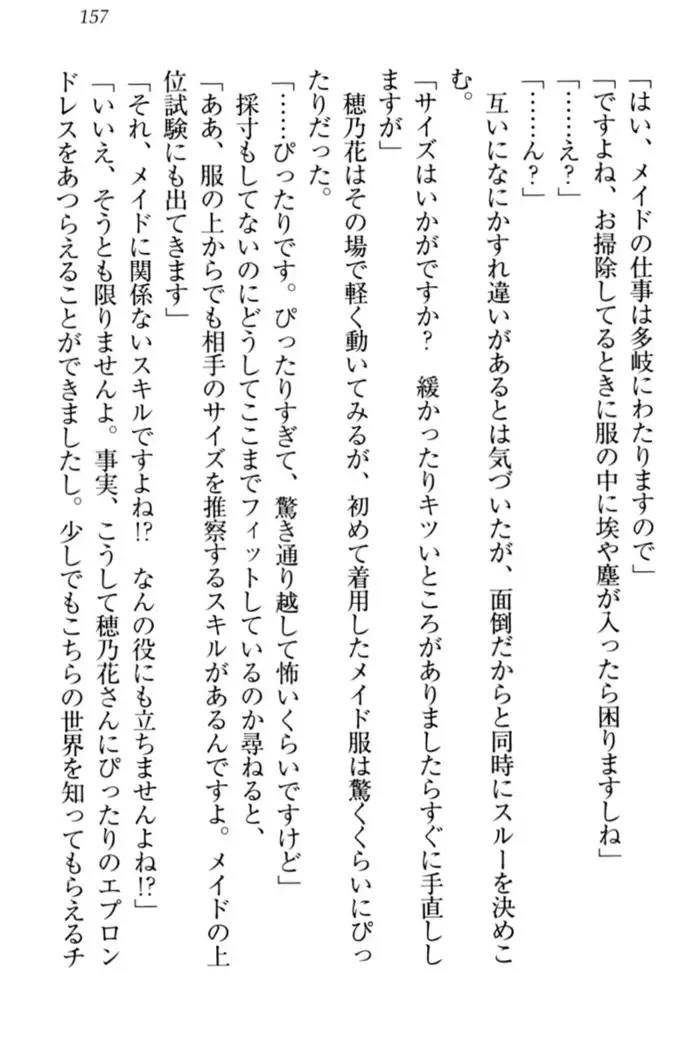 157
「はい、メイドの仕事は多岐にわたりますので」
「ですよね、お掃除してるときに服の中に埃や塵が入ったら困りますしね」
「……え?」
「……ん?」
互いになにかすれ違いがあるとは気づいたが、面倒だからと同時にスルーを決めこ
む。
「サイズはいかがですか?　緩かったりキツいところがありましたらすぐに手直しし
ますが」
穂乃花はその場で軽く動いてみるが、初めて着用したメイド服は驚くくらいにぴっ
たりだった。
「……ぴったりです。ぴったりすぎて、驚き通り越して怖いくらいですけど」
採寸もしてないのにどうしてここまでフィットしているのか尋ねると、
「ああ、服の上からでも相手のサイズを推察するスキルがあるんですよ。メイドの上
位試験にも出てきます」
「それ、メイドに関係ないスキルですよね!?　なんの役にも立ちませんよね!?」
「いいえ、そうとも限りませんよ。事実、こうして穂乃花さんにぴったりのエプロン
ドレスをあつらえることができましたし。少しでもこちらの世界を知ってもらえるチ